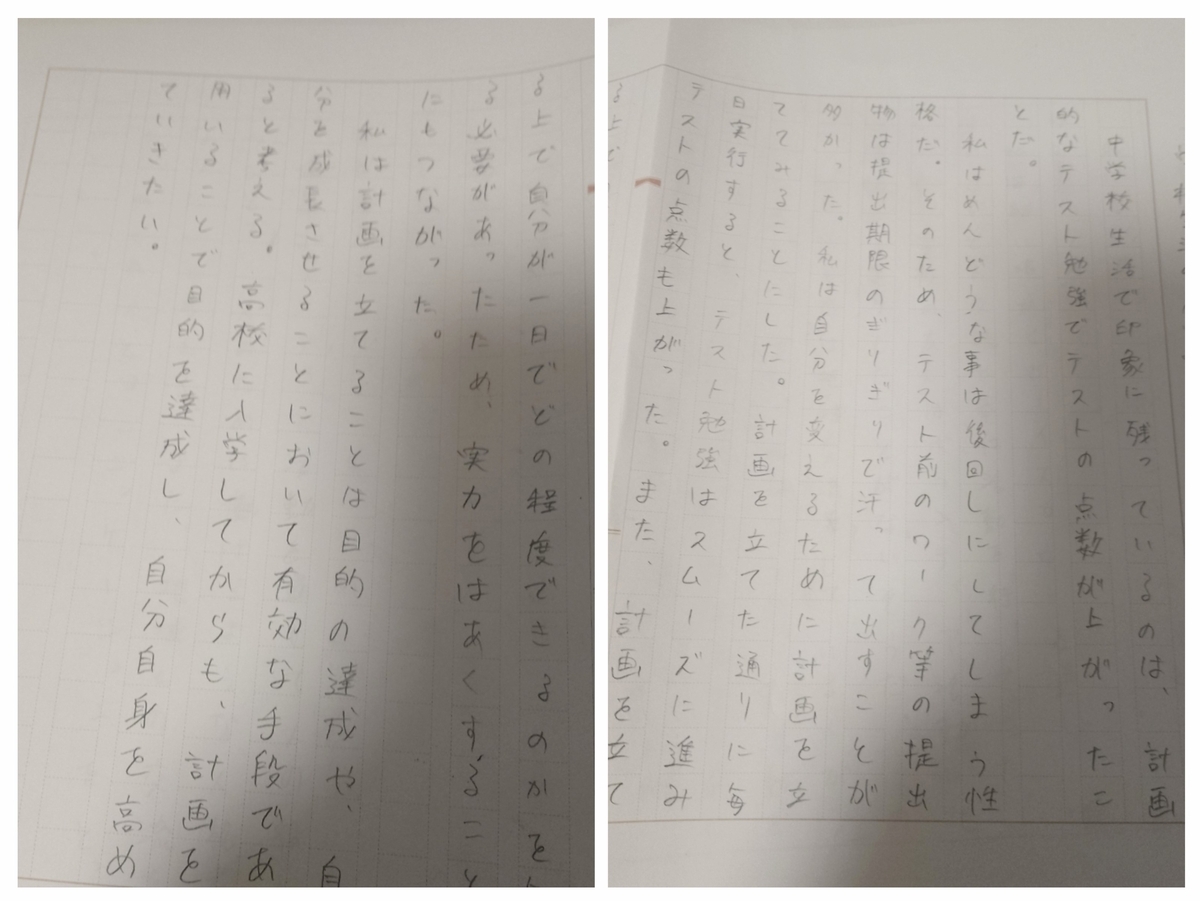 中学校生活で印象に残っているのは、計画
的なテスト勉強でテストの点数が上がったこ
とだ。
私はめんどうな事は後回しにしてしまう性
格だ。そのため、テスト前のワーク等の提出
物は提出期限のぎりぎりで汗って出すことが
多かった。私は自分を変えるために計画を立
ててみることにした。計画を立てた通りに毎
日実行すると、テスト勉強はスムーズに進み
テストの点数も上がった。また、計画を立て
る上で
る上で自分が一日でどの程度できるのかを
る必要があったため、実力をはあくすること
にもつながった。
私は計画を立てることは目的の達成や、自
分を成長させることにおいて有効な手段であ
ると考える。高校に入学してからも、計画を
用いることで目的を達成し、自分自身を高め
ていきたい。